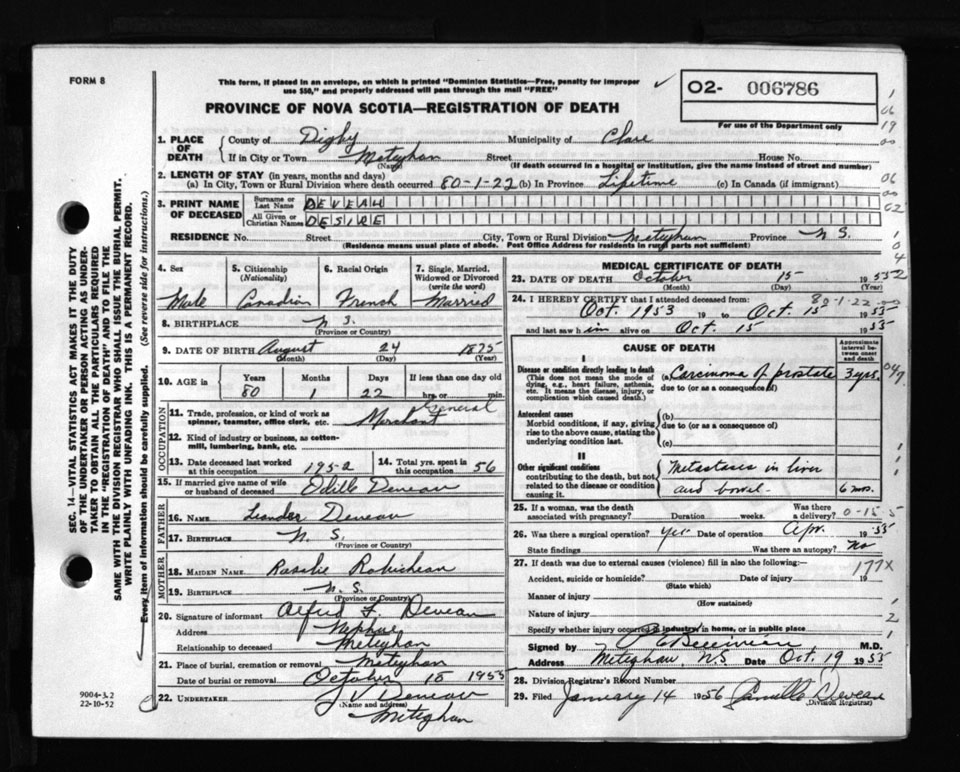 FORM 8
This form, if placed in an envelope, on which is printed "Dominion Statistics—Free, penalty for improper
use $50," and properly addressed will pass through the mail "FREE"
O2- 006786
For use of the Department only
PROVINCE OF NOVA SCOTIA—REGISTRATION OF DEATH
1. PLACE OF DEATH
County of Digby Municipality of Clare
If in City or Town Meteghan Street House No.
(Name) (If death occurred in a hospital or institution, give the name instead of street and number)
2. LENGTH OF STAY (in years, months and days)
(a) In City, Town or Rural Division where death occurred 80-1-22 (b) In Province Lifetime (c) In Canada (if immigrant)
3. PRINT NAME OF DECEASED
Surname or Last Name DEVEAU
All Given or Christian Names DESIRE
RESIDENCE No. Street City, Town or Rural Division Meteghan Province N S.
(Residence means usual place of abode. Post Office Address for residents in rural parts not sufficient)
4. Sex Male
5. Citizenship (Nationality) Canadian
6. Racial Origin French
7. Single, Married, Widowed or Divorced (write the word) Married
8. BIRTHPLACE N S.
(Province or Country)
9. DATE OF BIRTH August 24 1875
(Month) (Day) (Year)
10. AGE in Years Months Days If less than one day
80 1 22 hrs. or min.
OCCUPATION
11. Trade, profession, or kind of work as spinner, teamster, office clerk, etc. General Merchant
12. Kind of industry or business, as cotton-mill, lumbering, bank, etc.
13. Date deceased last worked at this occupation 1952
14. Total yrs. spent in this occupation 56
15. If married give name of wife or husband of deceased Odille Deveau
FATHER
16. NAME Leander Deveau
17. BIRTHPLACE N. S.
(Province or Country)
MOTHER
18. MAIDEN NAME Rosalie Robicheau
19. BIRTHPLACE N. S.
(Province or Country)
20. Signature of informant Alfred F. Deveau
Address Nephew
Relationship to deceased Meteghan
21. Place of burial, cremation or removal Meteghan
Date of burial or removal October 18 1955
22. UNDERTAKER J V Deveau
(Name and address)
Meteghan
MEDICAL CERTIFICATE OF DEATH
23. DATE OF DEATH October 15 1955
(Month) (Day)
80-1-22
24. I HEREBY CERTIFY that I attended deceased from:
Oct. 1953 19 to Oct. 15 1955
and last saw him alive on Oct. 15 1955
CAUSE OF DEATH
Approximate interval between onset and death
I
Disease or condition directly leading to death
(This does not mean the mode of dying, e.g., heart failure, asthenia, etc. It means the disease, injury, or complication which caused death.)
(a) Carcinoma of prostate 3 yrs.
due to (or as a consequence of)
Antecedent causes
Morbid conditions, if any, giving rise to the above cause, stating the underlying condition last.
(b)
due to (or as a consequence of)
(c)
II
Other significant conditions contributing to the death, but not related to the disease or condition causing it.
Metastasis in liver
and bowel. 6 mos.
25. If a woman, was the death associated with pregnancy? Duration weeks. Was there a delivery? 0-15-5
26. Was there a surgical operation? Yes Date of operation Apr. 1955
State findings Was there an autopsy? No
27. If death was due to external causes (violence) fill in also the following:— 177X
Accident, suicide or homicide? Date of injury 19
(State which)
Manner of injury
(How sustained)
Nature of injury
Specify whether injury occurred in industry, in home, or in public place
Signed by M.D.
Address Meteghan, N.S. Date Oct. 19 1955
28. Division Registrar's Record Number
29. Filed January 14 1956 Camille Deveau
(Division Registrar)
SEC. 14—VITAL STATISTICS MAKES IT THE DUTY
OF THE UNDERTAKER OR PERSON ACTING AS UNDER-
TAKER TO OBTAIN ALL THE PARTICULARS REQUIRED
IN THE "REGISTRATION OF DEATH" AND TO FILE THE
SAME WITH THE DIVISION REGISTRAR WHO SHALL ISSUE THE BURIAL PERMIT.
WRITE PLAINLY WITH UNFADING INK. THIS IS A PERMANENT RECORD.
Every item of information should be carefully supplied. (See reverse side for instructions.)
9004-3.2
22-10-52